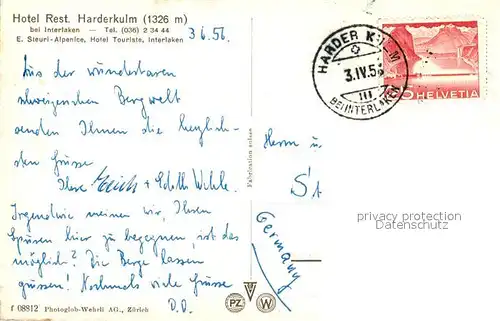 Hotel Rest. Harderkulm (1326 m)
bei Interlaken — Tel. (036) 2 34 44
E. Steuri-Alpenice, Hotel Touriste, Interlaken
3 6. 56.
HARDER KULM
3.IV.56
III
BEI INTERLAKEN
HELVETIA
Aus der wunderbaren
schweizerischen Bergwelt
senden Ihnen die herzlich-
sten Grüsse
Ihre + Edith
Irgendwie meinen wir, Ihren
Spuren hier zu begegnen, ist das
möglich? Die Berge lassen
grüssen! Nochmals viele Grüsse
D.O.
Fabrication suisse
Herrn u
St
Germany
privacy protection
Datenschutz
f 08812 Photoglob-Wehrli AG., Zürich
PZ
W